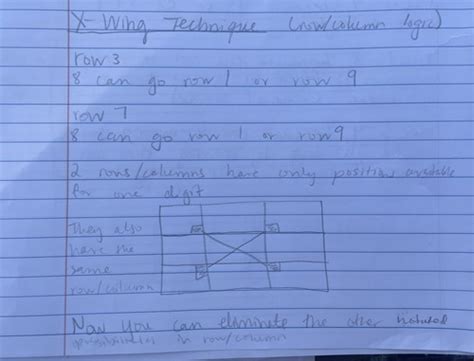 X-Wing Technique (row/column logic)
row 3
8 can go row 1 or row 9
row 7
8 can go row 1 or row 9
2 rows/columns have only position available
for one digit
They also
have the
same
row/column
Now you can eliminate the other
possibilities in row/column